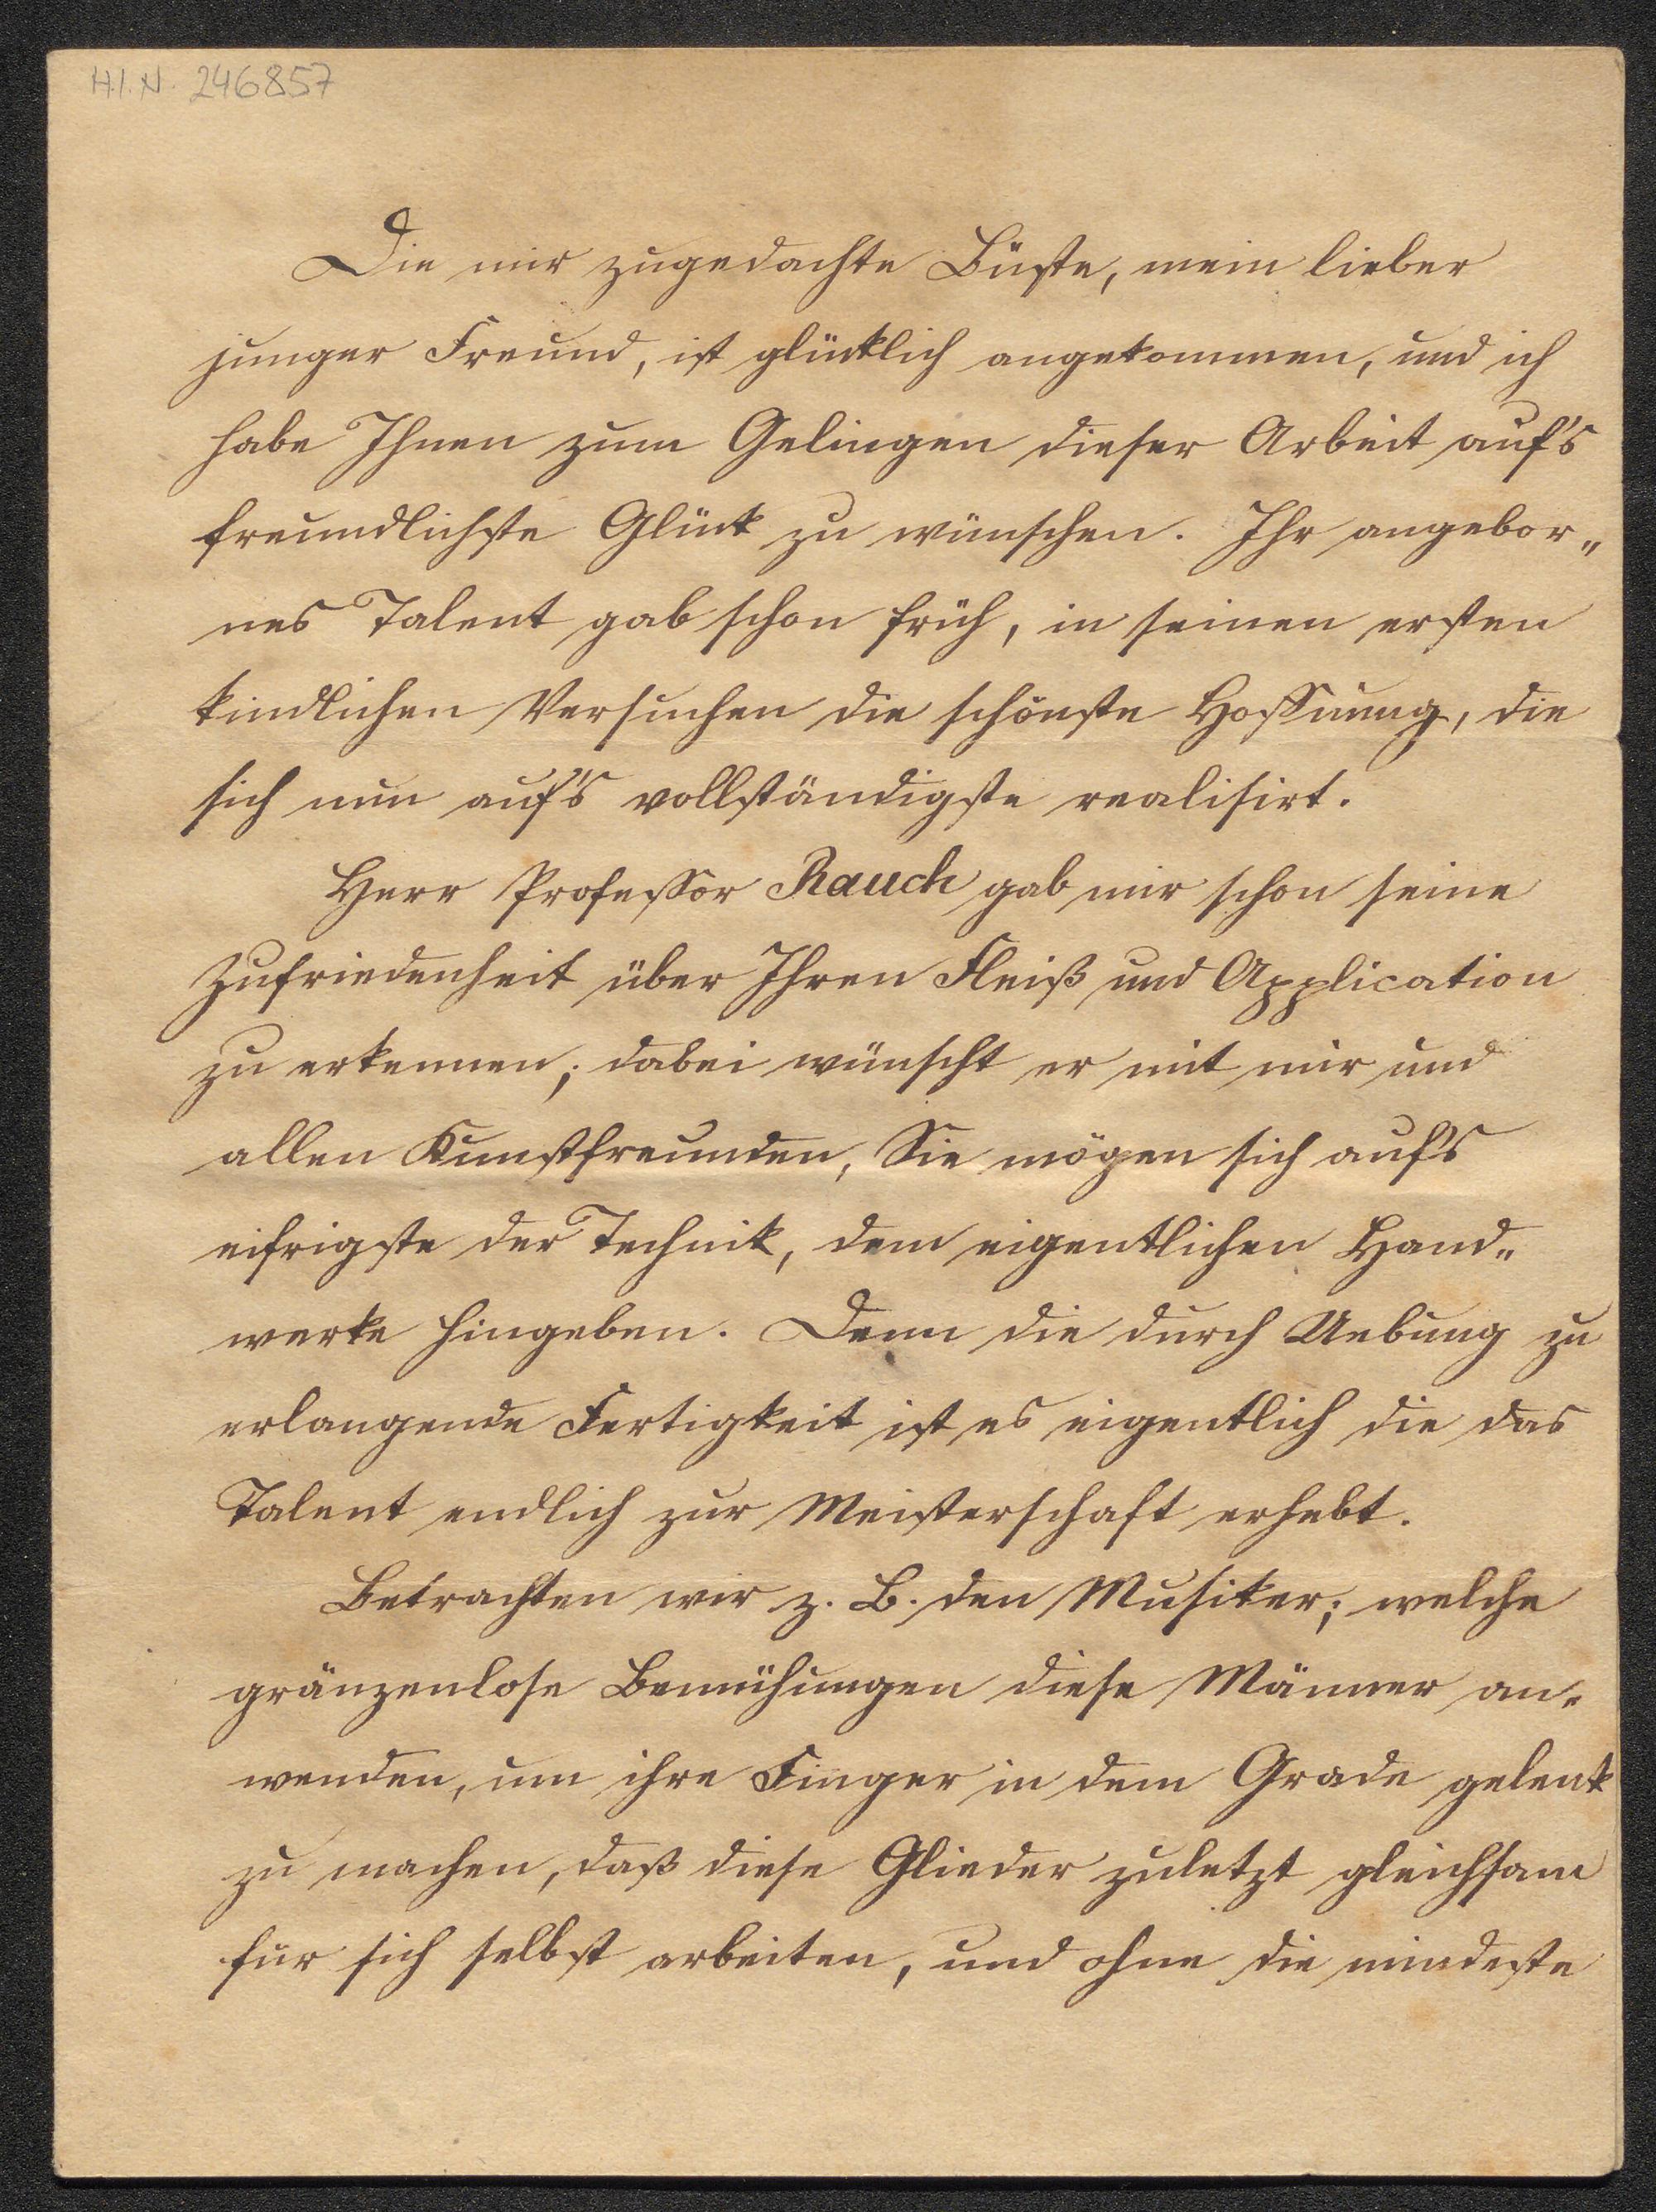 H.I.N. 246857
Die mir zugedachte Büste, mein lieber
junger Freund, ist glücklich angekommen, und ich
habe Ihnen zum Gelingen dieser Arbeit auf's
freundlichste Glück zu wünschen. Ihr angebor„
nes Talent gab schon früh, in seinen ersten
kindlichen Versuchen die schönste Hoffnung, die
sich nun auf's vollständigste realisirt.
Herr Professor Rauch gab mir schon seine
Zufriedenheit über Ihren Fleiß und Application
zu erkennen; dabei wünscht er mit mir und
allen Kunstfreunden, Sie mögen sich auf's
eifrigste der Technik, dem eigentlichen Hand„
werke hingeben. Denn die durch Uebung zu
erlangende Fertigkeit ist es eigentlich die das
Talent endlich zur Meisterschaft erhebt.
Betrachten wir z. B. den Musiker; welche
gränzenlose Bemühungen diese Männer an„
wenden, um ihre Finger in dem Grade gelenk
zu machen, daß diese Glieder zuletzt gleichsam
für sich selbst arbeiten, und ohne die mindeste